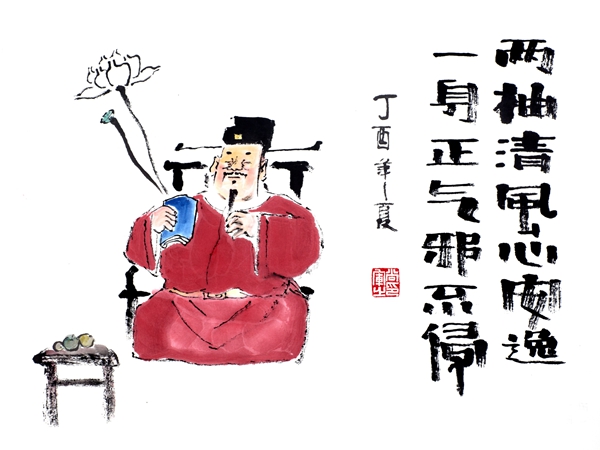 两袖清风心安逸
一身正气邪不侵
丁酉年之夏